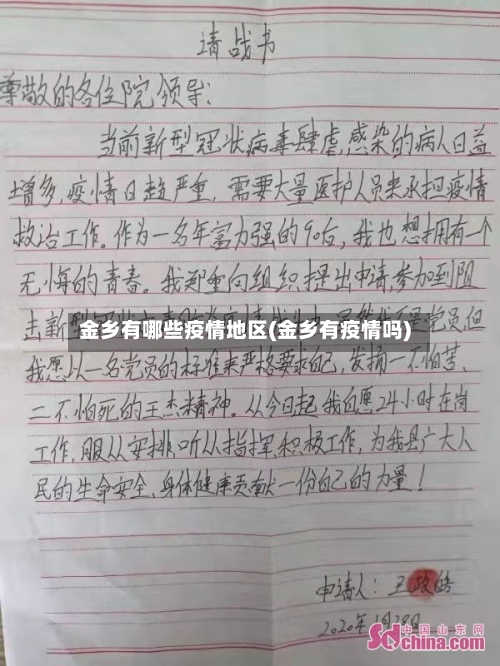 请战书
尊敬的各位院领导：
当前新型冠状病毒肆虐,感染的病人日益
增多,疫情日趋严重，需要大量医护人员来承担疫情
救治工作。作为一名年富力强的90后，我也想拥有一个
无悔的青春。我郑重向组织提出申请,参加到阻
击新型
党员,但
金乡有哪些疫情地区(金乡有疫情吗)
我愿以一名党员的标准来严格要求自己，发扬一不怕苦、
二不怕死的王杰精神。从今日起,我自愿24小时在岗
工作,服从安排,听从指挥,积极工作，为我县广大人
民的生命安全、身体健康贡献一份自己的力量！
申请人：王政皓
2020年1月29日
中国山东网
sdchina.com